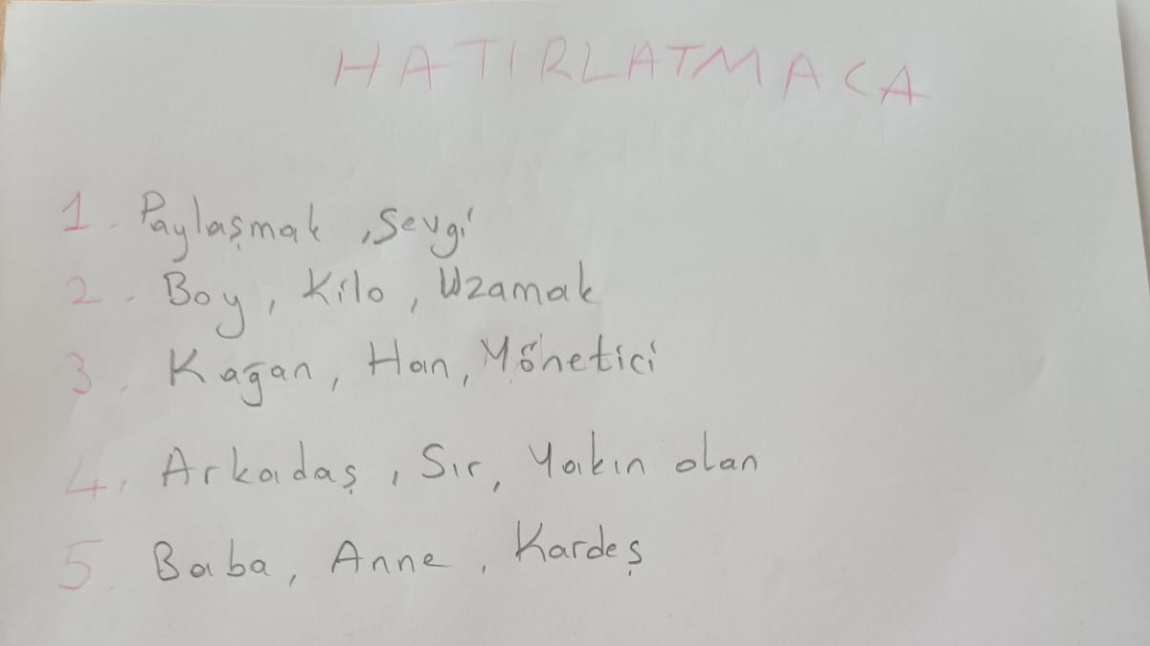 HATIRLATMACA
1. Paylaşmak, Sevgi
2. Boy, Kilo, Uzamak
3. Kağan, Han, Yönetici
4. Arkadaş, Sır, Yakın olan
5. Baba, Anne, Kardeş